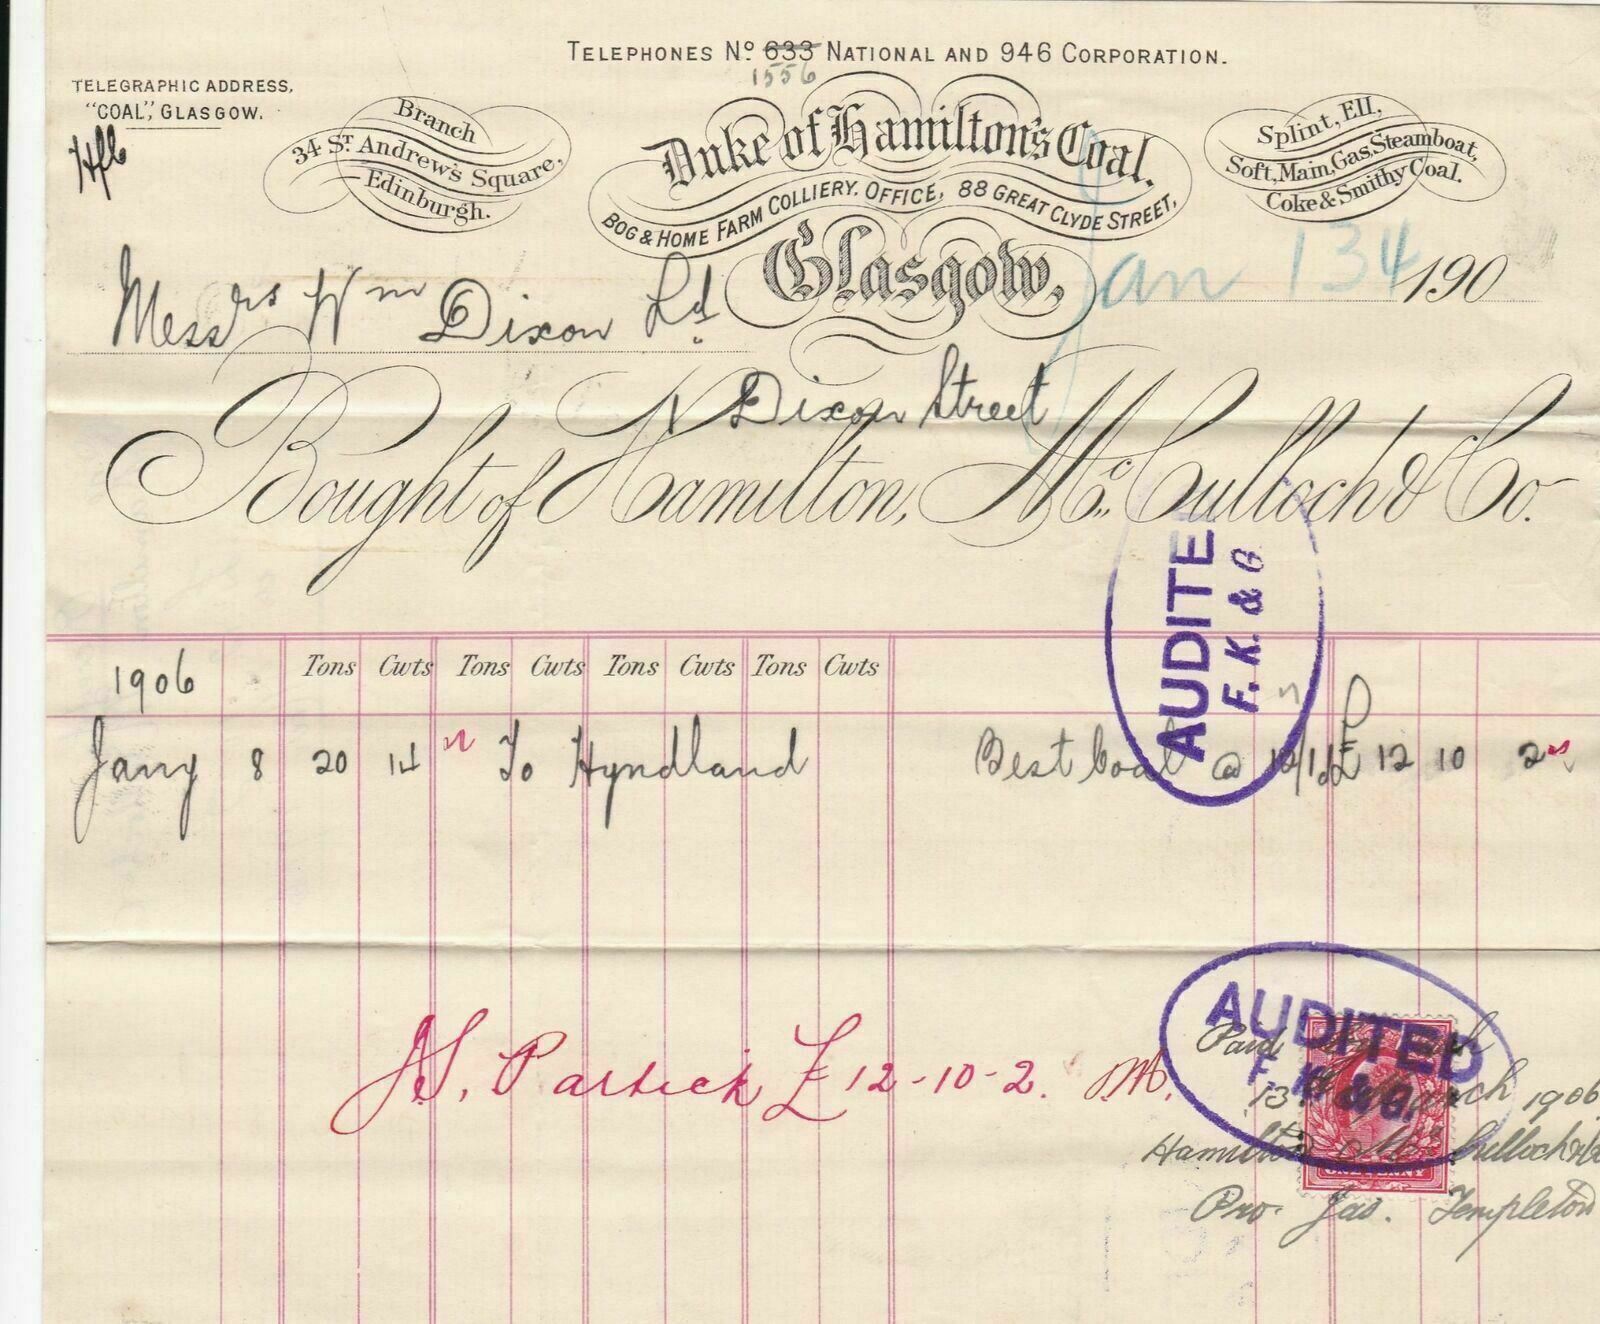 TELEPHONES No. 633 NATIONAL AND 946 CORPORATION.
1556
TELEGRAPHIC ADDRESS,
"COAL", GLASGOW.
Branch
34 St. Andrew's Square,
Edinburgh.
Duke of Hamilton's Coal.
BOG & HOME FARM COLLIERY. OFFICE, 88 GREAT CLYDE STREET,
Glasgow,
Splint, Ell,
Soft, Main, Gas, Steamboat,
Coke & Smithy Coal.
Jan 134 190
Messrs Wm Dixon Ld.
1 Dixon Street
Bought of Hamilton, McCulloch & Co.
AUDITE
F. K. & G
1906 Tons Cwts Tons Cwts Tons Cwts Tons Cwts £
Jany 8 20 14 To Hyndland Best Coal @ 12/1d £ 12 10 2
Partick £ 12-10-2.
AUDITED
F. K. & G.
Paid
13th March 1906
Hamilton McCulloch & Co
Pro. Jas. Templeton